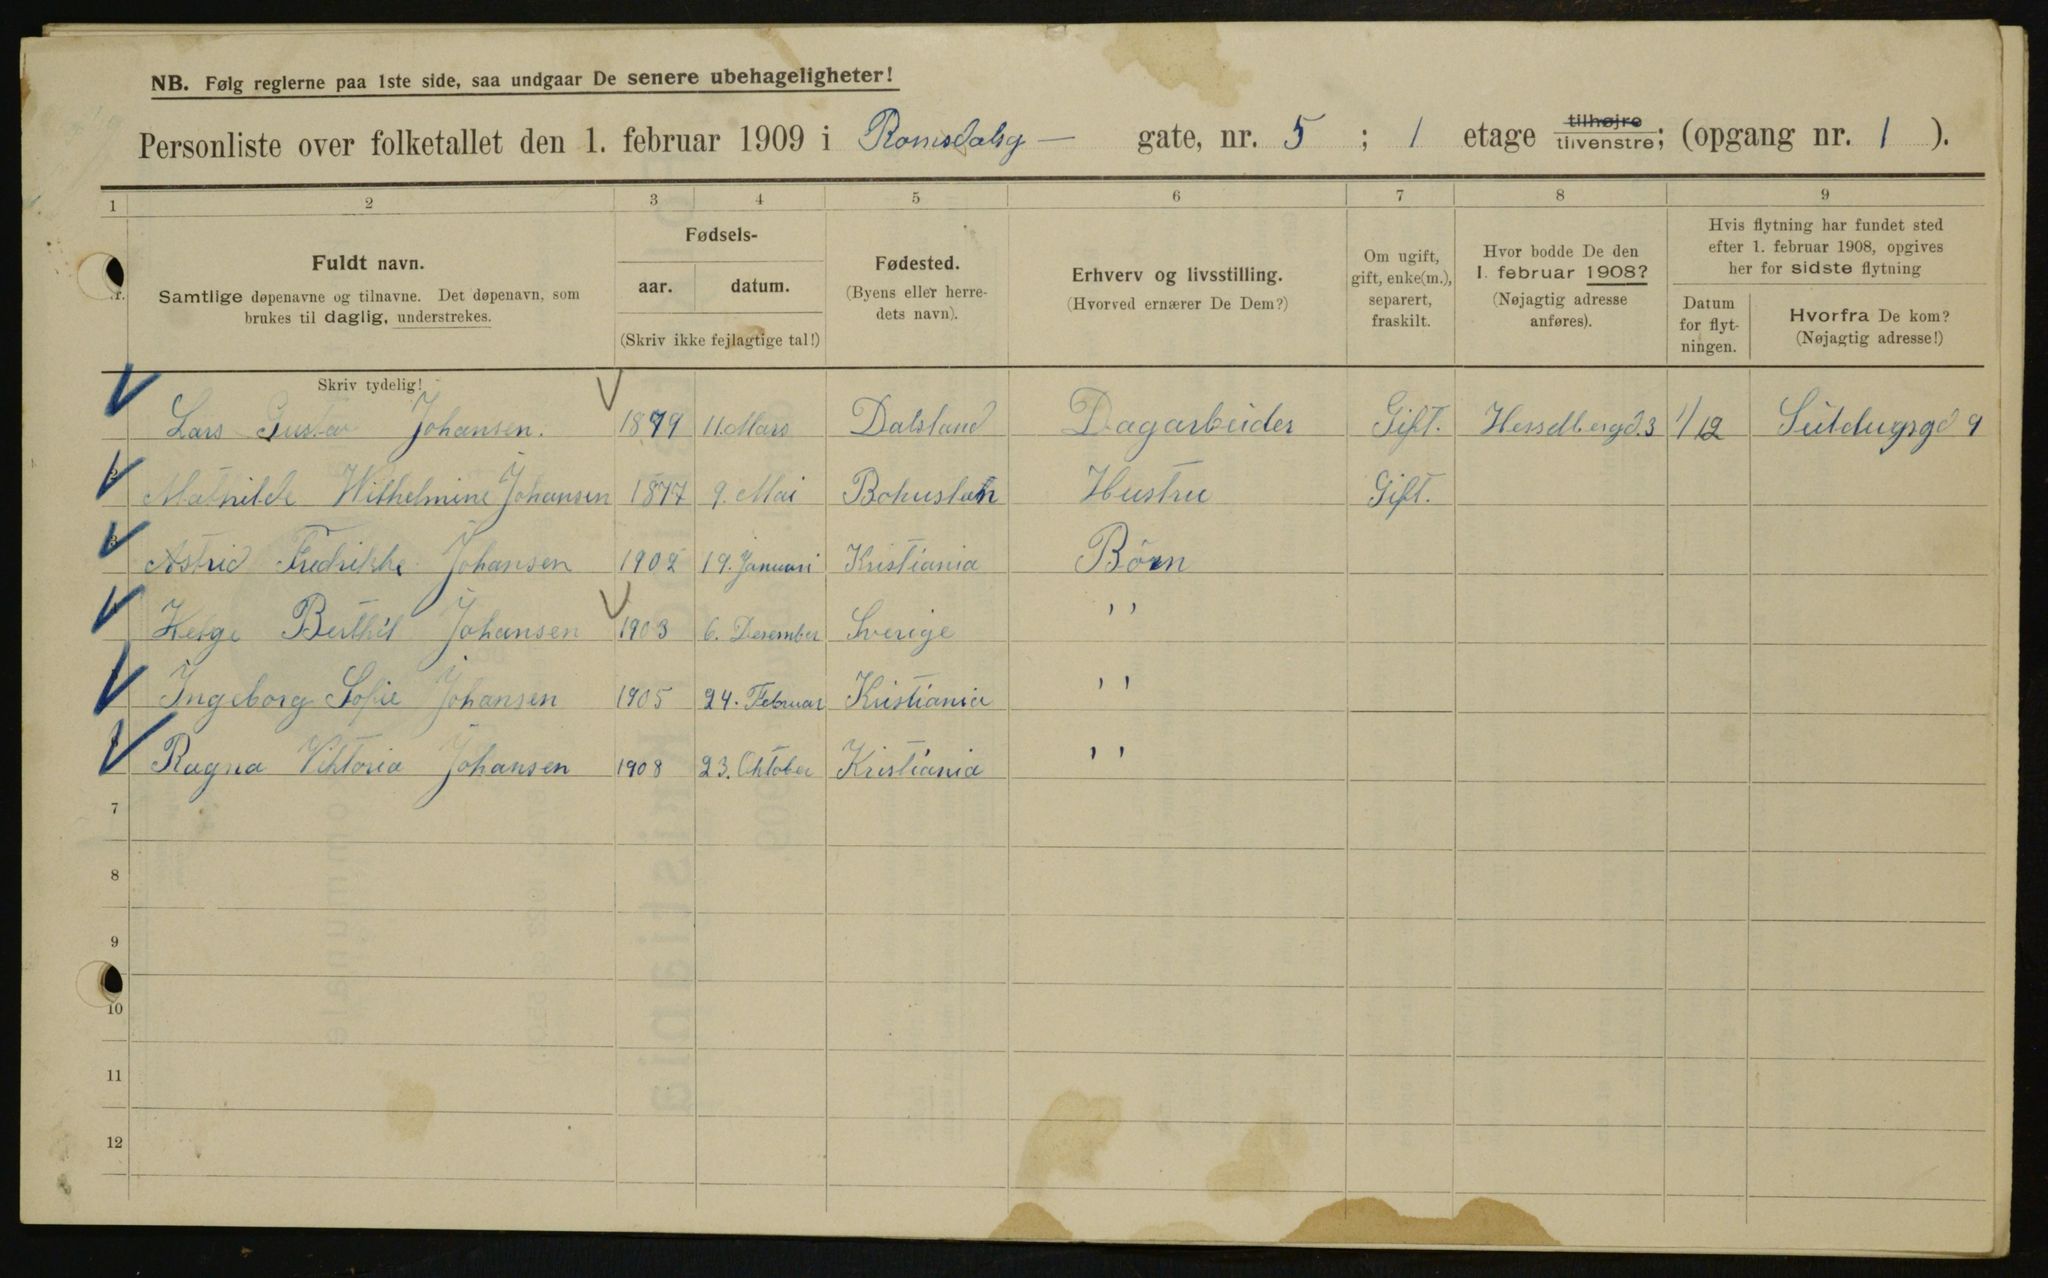 NB. Følg reglerne paa 1ste side, saa undgaar De senere ubehageligheter!
Personliste over folketallet den 1. februar 1909 i Romsdalsg — gate, nr. 5 ; 1 etage tilhøjre tilvenstre; (opgang nr. 1 ).
1 2 3 4 5 6 7 8 9
Fuldt navn.
Samtlige døpenavne og tilnavne. Det døpenavn, som
brukes til daglig, understrekes.
Fødsels-
aar. datum.
(Skriv ikke fejlagtige tal!)
Fødested.
(Byens eller herre-
dets navn).
Erhverv og livsstilling.
(Hvorved ernærer De Dem?)
Om ugift,
gift, enke(m.),
separert,
fraskilt.
Hvor bodde De den
1. februar 1908?
(Nøjagtig adresse
anføres).
Hvis flytning har fundet sted
efter 1. februar 1908, opgives
her for sidste flytning
Datum
for flyt-
ningen.
Hvorfra De kom?
(Nøjagtig adresse!)
Skriv tydelig!
Lars Gustav Johansen. 1879 11. Mars Dalsland Dagarbeider Gift. Hesselbergd. 3 1/12 9
Mathilde Wilhelmine Johansen 1877 9. Mai Bohuslan Hustru Gift.
Astrid Fredrikke Johansen 1902 19. Januari Kristiania Börn
Helge Berthil Johansen 1903 6. Desember Sverige " 
Ingeborg Sofie Johansen 1905 24. Februar Kristiania "
Ragna Viktoria Johansen 1908 23. Oktober Kristiania "
7
8
9
10
11
12